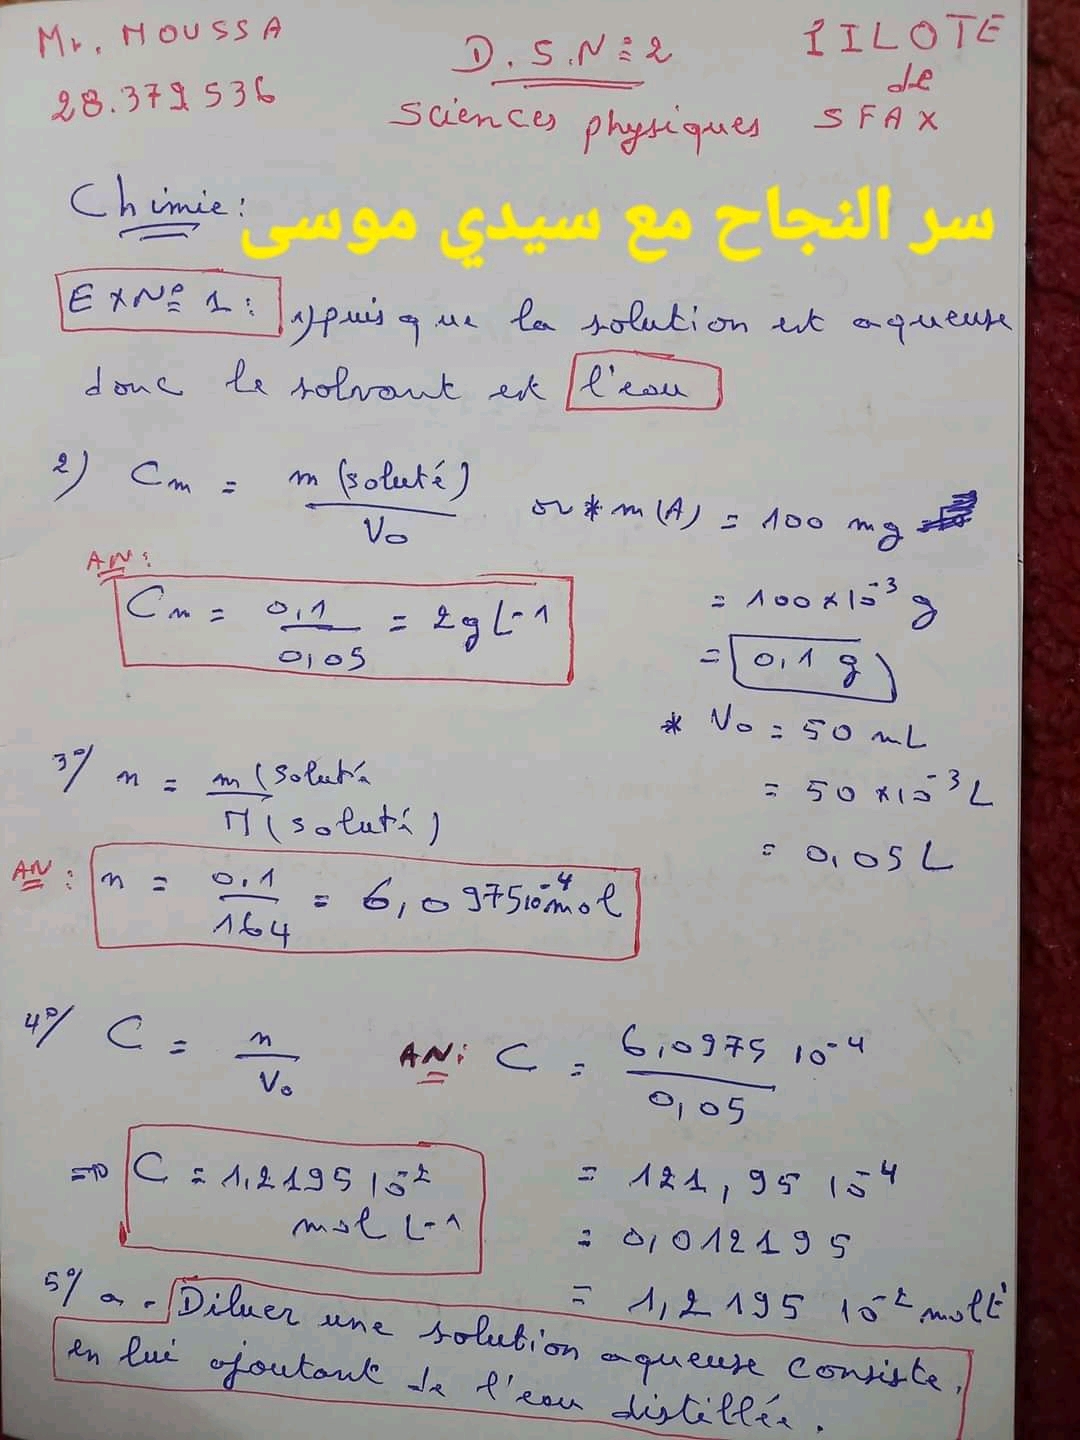 Mr. MOUSSA
28.379536
D.S.N°2
Sciences physiques
PILOTE
de
SFAX
Chimie:
سر النجاح مع سيدي موسى
Ex N° 1: 1) puis que la solution est aqueuse
donc le solvant est l'eau
2) Cm = m (soluté) / V0 or * m(A) = 100 mg
= 100 × 10⁻³ g
= 0,1 g
AN:
Cm = 0,1 / 0,05 = 2 g L-1
* V0 = 50 mL
= 50 × 10⁻³ L
= 0,05 L
3°/ n = m (soluté / M (soluté)
AN: n = 0,1 / 164 = 6,0975 10⁻⁴ mol
4°/ C = n / V0 AN: C = 6,0975 10⁻⁴ / 0,05
= 121,95 10⁻⁴
= 0,012195
= 1,2195 10⁻² mol L⁻¹
=> C = 1,2195 10⁻²
mol L-1
5°/ a - Diluer une solution aqueuse consiste,
en lui ajoutant de l'eau distillée.